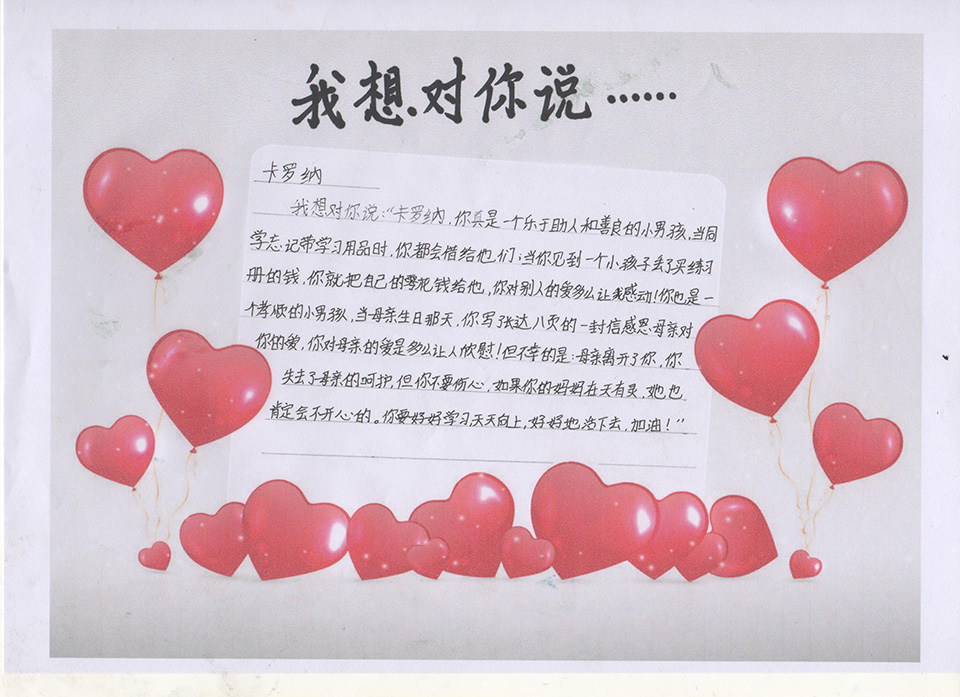 我想对你说……
卡罗纳
我想对你说:“卡罗纳,你真是一个乐于助人和善良的小男孩,当同
学忘记带学习用品时,你都会借给他们;当你见到一个小孩子丢了买练习
册的钱,你就把自己的零花钱给他,你对别人的爱多么让我感动!你也是一
个孝顺的小男孩,当母亲生日那天,你写了张达八页的一封信感恩母亲对
你的爱,你对母亲的爱是多么让人欣慰!但不幸的是:母亲离开了你,你
失去了母亲的呵护,但你不要伤心,如果你的妈妈在天有灵,她也
肯定会不开心的。你要好好学习天天向上,好好地活下去,加油!”